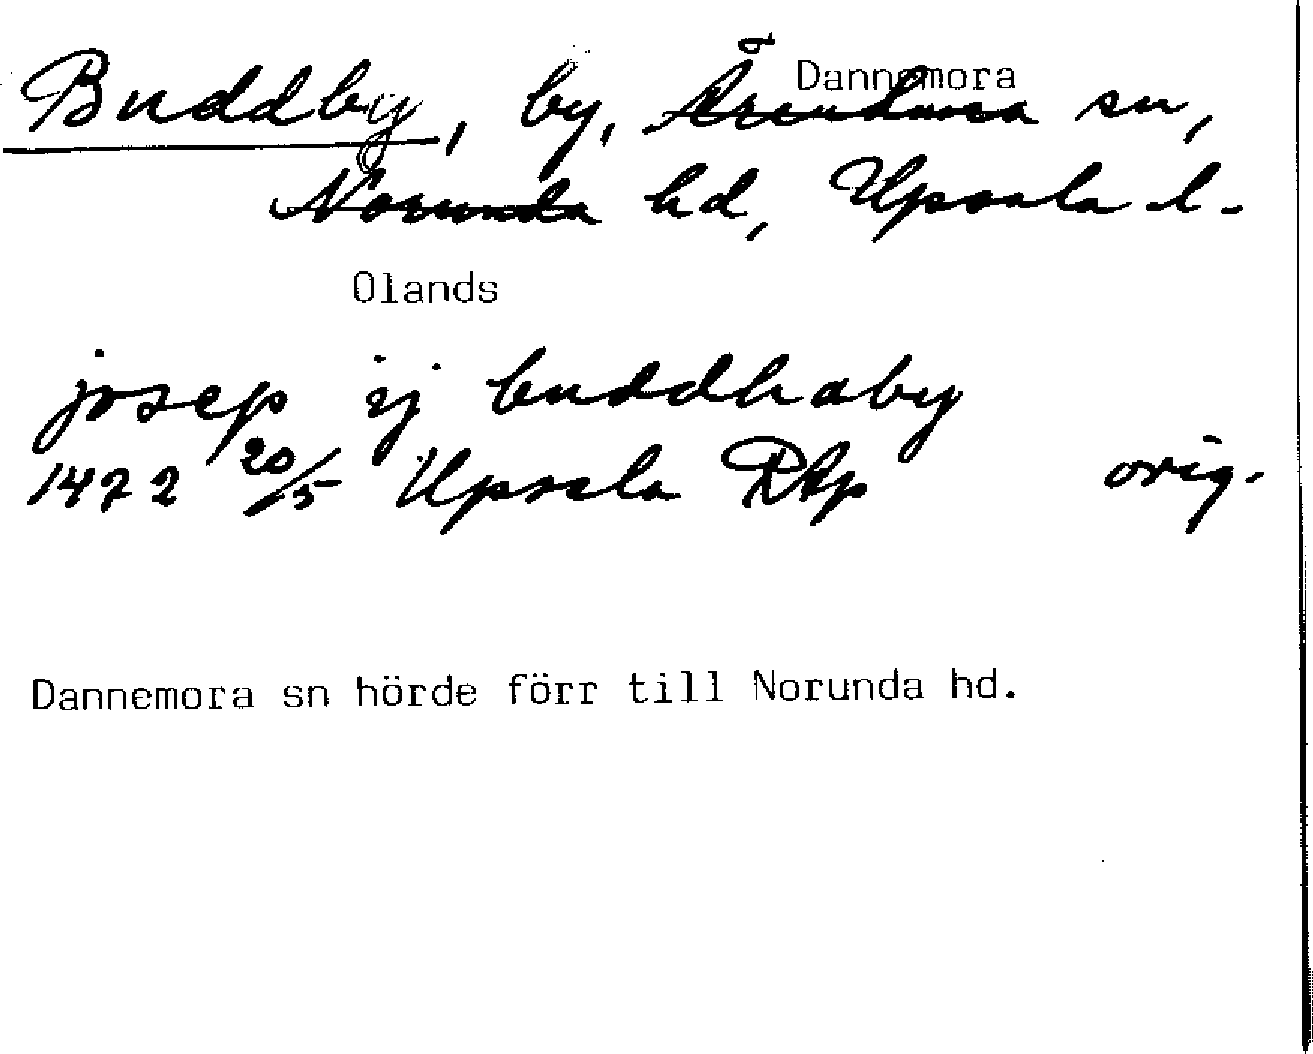 Dannemora
Buddby, by, sn,
Norunda hd, Upsala l.
Olands
josep ij buddhaby
1472 20/5 Upsala RAp orig.
Dannemora sn hörde förr till Norunda hd.